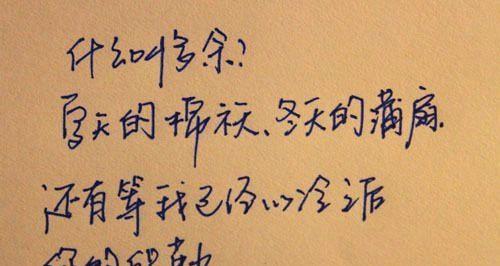 什么叫多余?
夏天的棉袄、冬天的蒲扇.
还有等我已经心冷之后
你的殷勤